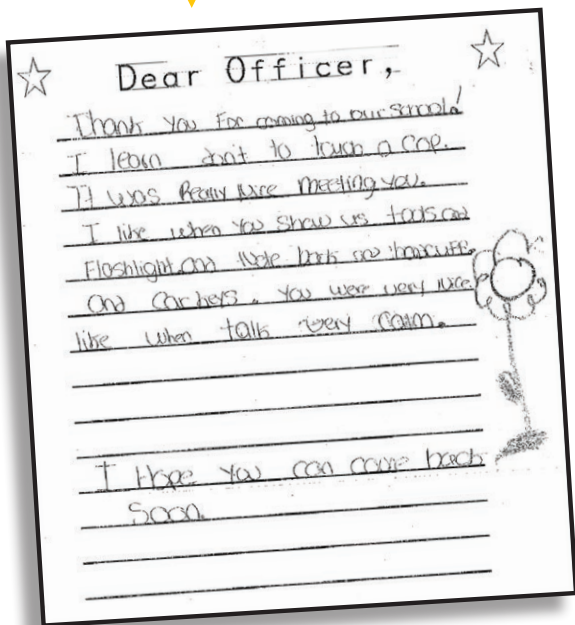 Dear Officer,
Thank you For coming to our school!
I learn don't to touch a cop.
It was Really Nice meeting you.
I like when you show us tools and
Flashlight. and Note book and handcuffs
and car keys. You were very nice.
like when talk very calm.
I Hope you can come back
Soon.